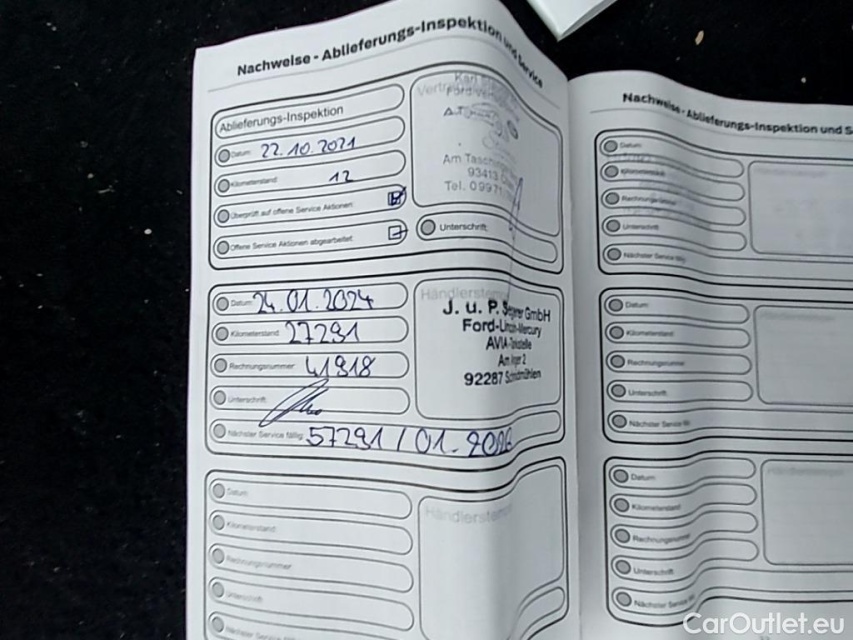 Nachweise - Ablieferungs-Inspektion und Service
Ablieferungs-Inspektion
Datum: 22.10.2021
Kilometerstand: 12
Überprüft auf offene Service Aktionen:
Offene Service Aktionen abgearbeitet:
Am
93413
Tel. 09971
Unterschrift:
Datum: 24.01.2024
Kilometerstand: 27291
Rechnungsnummer: 41918
Unterschrift:
Nächster Service fällig: 57291 / 01.2026
Händlerstempel
J. u. P. GmbH
Ford-Lincoln-Mercury
AVIA-Tankstelle
Am Anger 2
92287 Schmidmühlen
Datum:
Kilometerstand:
Rechnungsnummer:
Unterschrift:
Nächster Service
Händlerstempel
Nachweise - Ablieferungs-Inspektion und S
Datum:
Kilometerstand:
Unterschrift:
Nächster Service fällig:
Datum:
Kilometerstand:
Rechnungsnummer:
Unterschrift:
Nächster Service
Datum:
Kilometerstand:
Rechnungsnummer:
Unterschrift:
Nächster Service
CarOutlet.eu